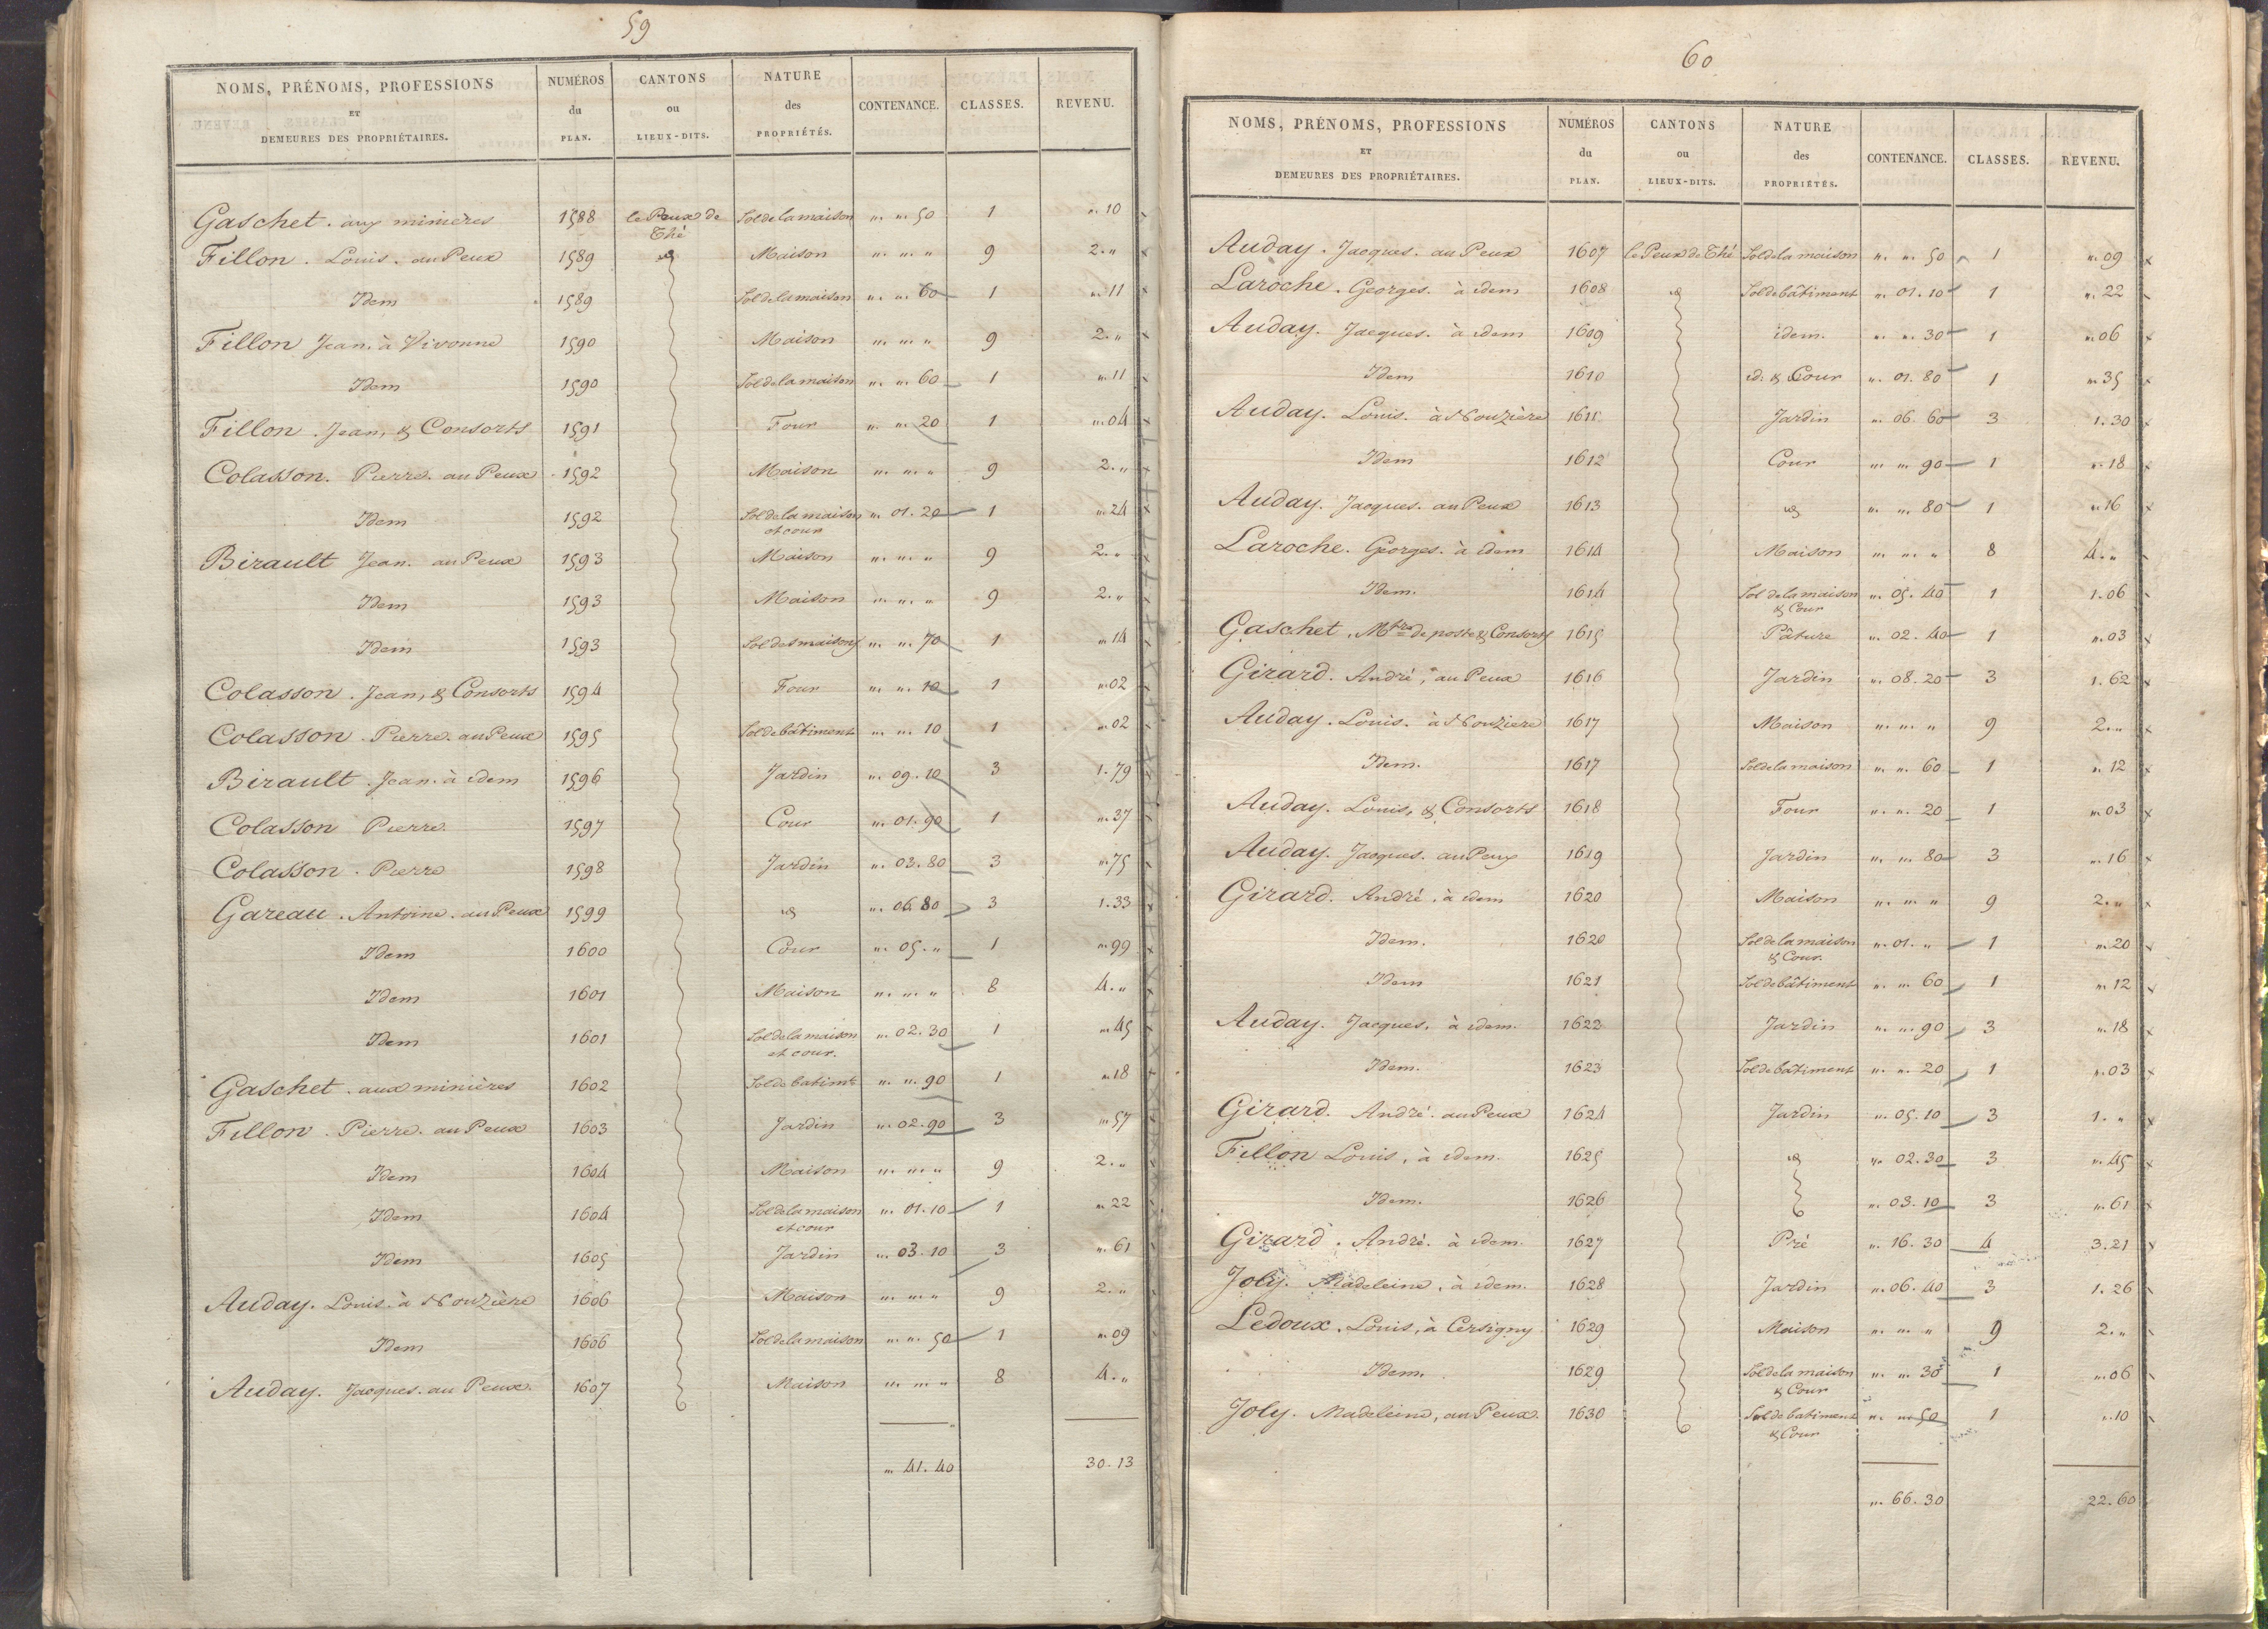 59
NOMS, PRÉNOMS, PROFESSIONS ET DEMEURES DES PROPRIÉTAIRES. NUMÉROS du PLAN. CANTONS ou LIEUX-DITS. NATURE des PROPRIÉTÉS. CONTENANCE. CLASSES. REVENU.
Gaschet. aux minières 1588 le Peux de Thé Sol de la maison " " 50 1 " 10
Fillon. Louis. au Peux 1589 id Maison " " " 9 2. "
Idem 1589 Sol de la maison " " 60 1 " 11
Fillon Jean. à Vivonne 1590 Maison " " " 9 2. "
Idem 1590 Sol de la maison " " 60 1 " 11
Fillon. Jean, & Consorts 1591 Four " " 20 1 " 04
Colasson. Pierre. au Peux 1592 Maison " " " 9 2. "
Idem 1592 Sol de la maison et cour " 01. 20 1 " 24
Birault Jean. au Peux 1593 Maison " " " 9 2. "
Idem 1593 Maison " " " 9 2. "
Idem 1593 Sol des maisons " " 70 1 " 14
Colasson. Jean, & Consorts 1594 Four " " 10 1 " 02
Colasson. Pierre. au Peux 1595 Sol de bâtiment " " 10 1 " 02
Birault. Jean. à idem 1596 Jardin " 09. 10 3 1. 79
Colasson Pierre. 1597 Cour " 01. 90 1 " 37
Colasson. Pierre 1598 Jardin " 03. 80 3 " 75
Gareau. Antoine. au Peux 1599 id " 06. 80 3 1. 33
Idem 1600 Cour " 05. " 1 " 99
Idem 1601 Maison " " " 8 4. "
Idem 1601 Sol de la maison et cour. " 02. 30 1 " 45
Gaschet. aux minières 1602 Sol de batimt " " 90 1 " 18
Fillon. Pierre. au Peux 1603 Jardin " 02. 90 3 " 57
Idem 1604 Maison " " " 9 2. "
Idem 1604 Sol de la maison et cour " 01. 10 1 " 22
Idem 1605 Jardin " 03. 10 3 " 61
Auday. Louis. à Nouzière 1606 Maison " " " 9 2. "
Idem 1606 Sol de la maison " " 50 1 " 09
Auday. Jacques. au Peux. 1607 Maison " " " 8 4. "
" 41. 40 30. 13
60
NOMS, PRÉNOMS, PROFESSIONS ET DEMEURES DES PROPRIÉTAIRES. NUMÉROS du PLAN. CANTONS ou LIEUX-DITS. NATURE des PROPRIÉTÉS. CONTENANCE. CLASSES. REVENU.
Auday. Jacques. au Peux 1607 le Peux de Thé Sol de la maison " " 50 1 " 09
Laroche. Georges. à idem 1608 id Sol de bâtiment " 01. 10 1 " 22
Auday. Jacques. à idem 1609 idem. " " 30 1 " 06
Idem 1610 id. & Cour " 01. 80 1 " 35
Auday. Louis. à Nouzière 1611 Jardin " 06. 60 3 1. 30
Idem 1612 Cour " " 90 1 " 18
Auday. Jacques. au Peux 1613 id " " 80 1 " 16
Laroche. Georges. à idem 1614 Maison " " " 8 4. "
Idem. 1614 Sol de la maison & Cour " 05. 40 1 1. 06
Gaschet, Mtre de poste & Consorts 1615 Pâture " 02. 40 1 " 03
Girard. André, au Peux 1616 Jardin " 08. 20 3 1. 62
Auday. Louis. à Nouzière 1617 Maison " " " 9 2. "
Idem. 1617 Sol de la maison " " 60 1 " 12
Auday. Louis, & Consorts 1618 Four " " 20 1 " 03
Auday. Jacques. au Peux 1619 Jardin " " 80 3 " 16
Girard. André. à idem 1620 Maison " " " 9 2. "
Idem. 1620 Sol de la maison & Cour. " 01. " 1 " 20
Idem 1621 Sol de bâtiment " " 60 1 " 12
Auday. Jacques, à idem. 1622 Jardin " " 90 3 " 18
Idem. 1623 Sol de batiment " " 20 1 " 03
Girard. André. au Peux 1624 Jardin " 05. 10 3 1. "
Fillon Louis, à idem. 1625 id " 02. 30 3 " 45
Idem. 1626 " 03. 10 3 " 61
Girard. André. à idem. 1627 Pré " 16. 30 4 3. 21
Joly. Madeleine, à idem. 1628 Jardin " 06. 40 3 1. 26
Ledoux. Louis, à Cersigny 1629 Maison " " " 9 2. "
Idem. 1629 Sol de la maison & Cour " " 30 1 " 06
Joly. Madeleine, au Peux. 1630 Sol de batiment & Cour " " 50 1 " 10
" 66. 30 22. 60